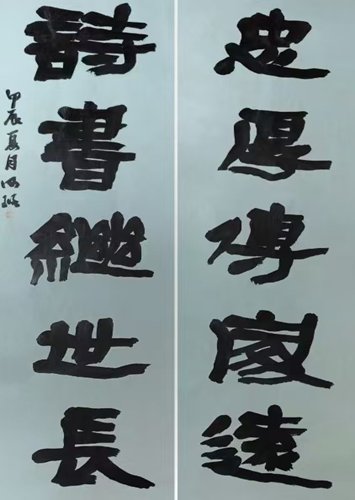 忠厚傳家遠
詩書繼世長
甲辰夏月